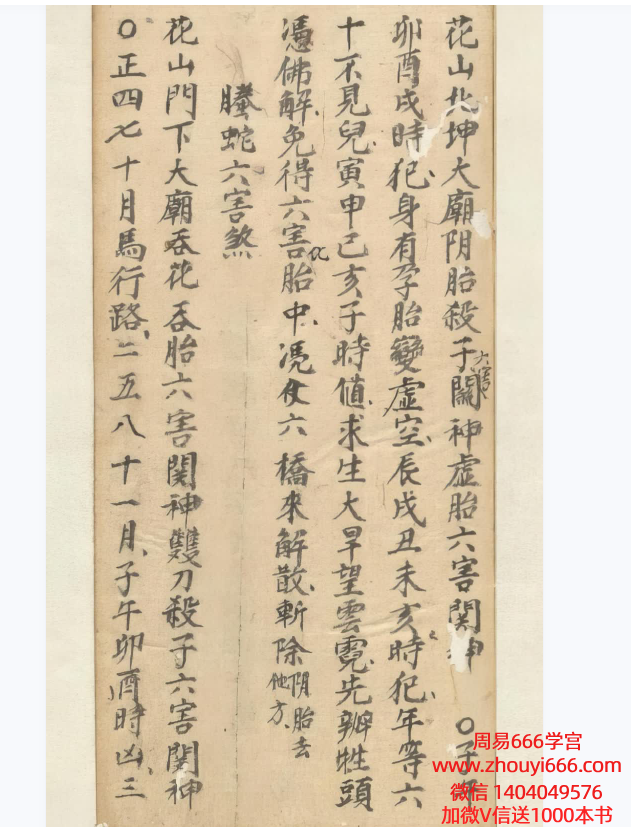 花山北坤大廟阴胎殺子六害關神虛胎六害関神 〇子午
卯酉戌時犯、身有孕胎變虛空、辰戌丑未亥時犯、年等六
十不見兒、寅申巳亥子時値、求生大旱望雲霓、先辦牲頭
憑佛解、免得六害化胎中、憑仗六橋來解散、斬除阴胎去他方、
騰蛇六害煞
花山門下大廟吞花吞胎六害関神雙刀殺子六害関神
〇正四七十月馬行路、二五八十一月、子午卯酉時凶、三
周易666学宫
www.zhouyi666.com
微信 1404049576
加微V信送1000本书